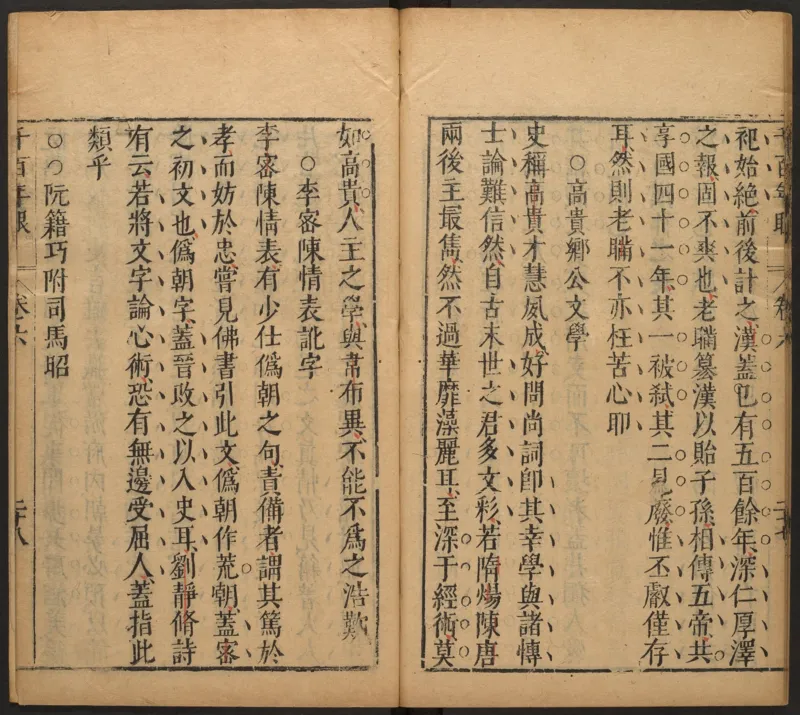 祀始絶前後計之漢蓋已有五百餘年深仁厚澤
之報固不爽也老瞞篡漢以貽子孫相傳五帝共
享國四十一年其一被弒其二見廢惟丕叡僅存
耳然則老瞞不亦枉苦心耶
○高貴鄉公文學
史稱高貴才慧夙成好問尚詞即其幸學與諸博
士論難信然自古末世之君多文彩若隋煬陳唐
兩後主最雋然不過華靡藻麗耳至深于經術莫
如高貴人主之學與韋布異不能不為之浩歎
○李密陳情表訛字
李密陳情表有少仕僞朝之句責備者謂其篤於
孝而妨於忠嘗見佛書引此文僞朝作荒朝蓋密
之初文也僞朝字蓋晉改之以入史耳劉靜脩詩
有云若將文字論心術恐有無邊受屈人蓋指此
類乎
○阮籍巧附司馬昭
千百年眼
卷六
二十八